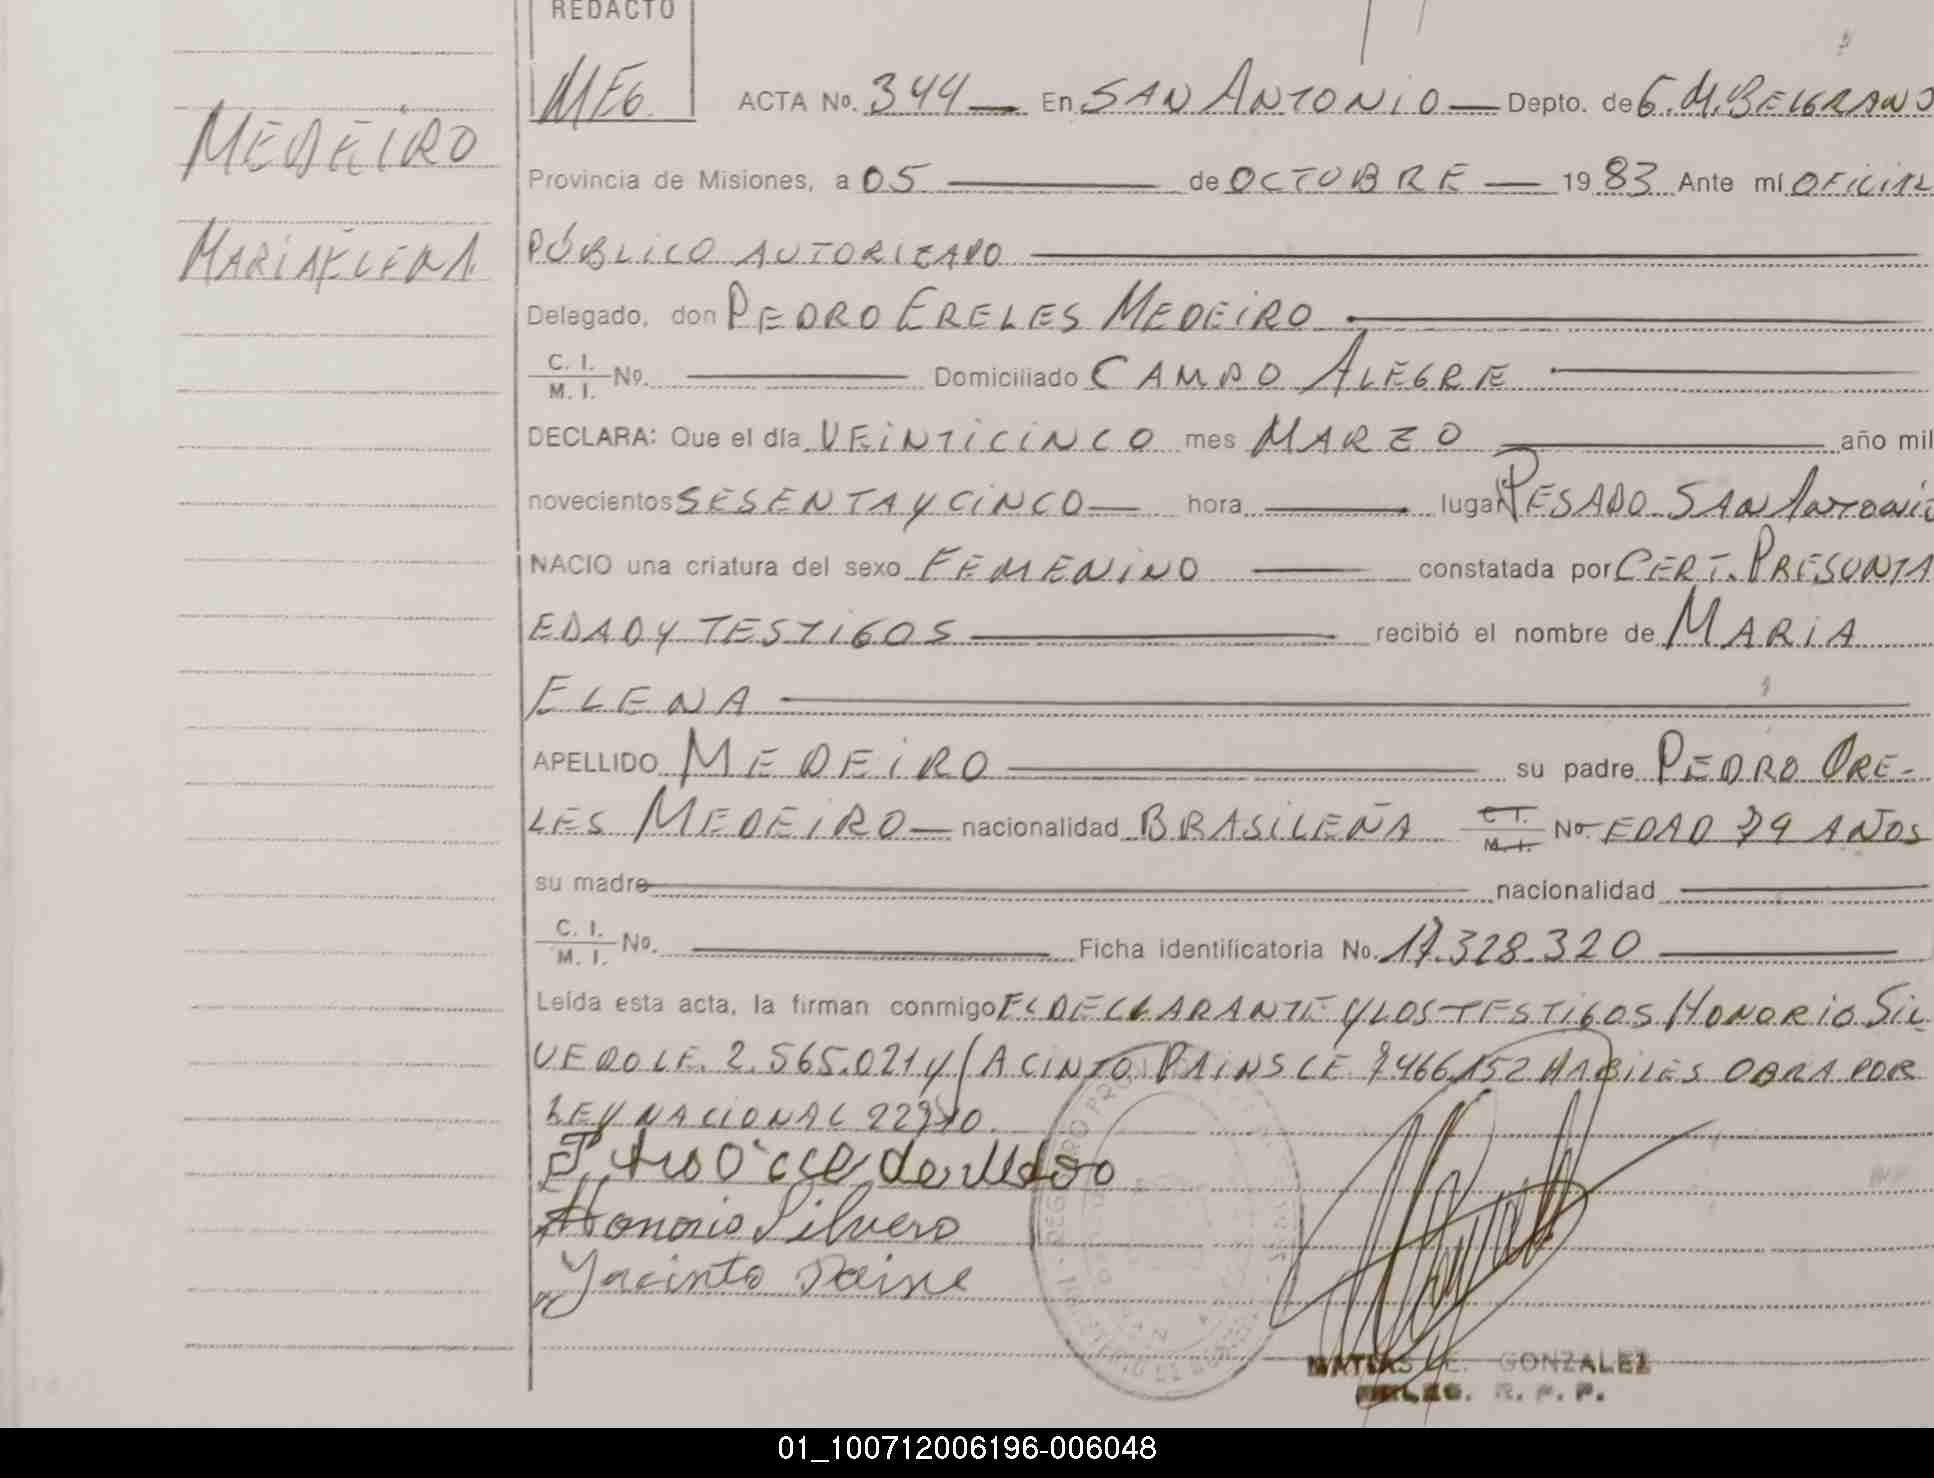 REDACTO
MEG.
ACTA No. 344 En SAN ANTONIO Depto. de G.M.BELGRANO
MEDEIRO
Provincia de Misiones, a 05 de OCTUBRE 1983 Ante mí OFICIAL
MARIA ELENA
PÚBLICO AUTORIZADO
Delegado, don PEDRO ERELES MEDEIRO
C. I. / M. I. No. Domiciliado CAMPO ALEGRE
DECLARA: Que el día VEINTICINCO mes MARZO año mil
novecientos SESENTA Y CINCO hora lugar PESADO SAN ANTONIO
NACIO una criatura del sexo FEMENINO constatada por CERT. PRESUNTA
EDAD Y TESTIGOS recibió el nombre de MARIA
ELENA
APELLIDO MEDEIRO su padre PEDRO ORE-
LES MEDEIRO nacionalidad BRASILEÑA C I. / M. I. No. EDAD 79 AÑOS
su madre nacionalidad
C. I. / M. I. No. Ficha identificatoria No. 17.328.320
Leída esta acta, la firman conmigo EL DECLARANTE Y LOS TESTIGOS HONORIO SIL
VERO LE. 2.565.021 Y JACINTO PAINS LE 7466152 HABILES OBRA POR
LEY NACIONAL
Honorio Silvero
Jacinto
MATIAS E. GONZALEZ
DELEG. R. P. P.
01_100712006196-006048